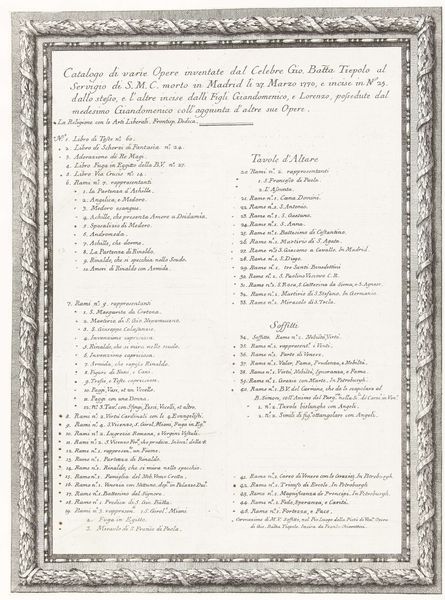 Catalogo di varie Opere inventate dal Celebre Gio. Batta Tiepolo al
Servigio di S.M.C. morto in Madrid li 27 Marzo 1770, e incise in Nº 25.
dallo stesso, e l'altre incise dalli Figli Giandomenico, e Lorenzo, possedute dal
medesimo Giandomenico coll'aggiunta d'altre sue Opere.
La Religione con le Arti Liberali, Frontisp. Dedica.
Nº 1. Libro di Teste nº 60.
2. Libro di Scherzi di Fantasia nº 24.
3. Adorazione de Re Magi.
4. Libro Fuga in Egitto della B.V. nº 27.
5. Libro Via Crucis nº 14.
6. Rami nº 7. rappresentanti
1. La Partenza d'Achille.
2. Angelica, e Medoro.
3. Medoro esangue.
4. Achille, che presenta Amore a Deidamia.
5. Sposalizio di Medoro.
6. Andromeda.
7. Achille, che dorme.
8. La Partenza di Rinaldo.
9. Rinaldo, che si specchia nello Scudo.
10. Amori di Rinaldo con Armida.
7. Rami nº 9. rappresentanti
1. S. Margarita da Cortona.
2. Martirio di S. Gio Nepomuceno.
3. S. Giuseppe Calasanzio.
4. Invenzione capricciosa.
5. Rinaldo, che si mira nello scudo.
6. Invenzione capricciosa.
7. Armida, che rapisce Rinaldo.
8. Figure di Nani, e Cani.
9. Trofei, e Teste capricciose.
10. Paggi, Vasi, et un Vecchio.
11. Paggi con una Donna.
8. Rami nº 2. Virtù Cardinali con le 4 Evangelisti.
9. Rami nº 4. S. Vicenzo, S. Girol. Miani, Fuga in Eg.
10. Rami nº 2. Lugrezia Romana, e Vergini Vestali.
12. Rami nº 1. rappresen. un Poema.
13. Rami nº 1. Partenza di Rinaldo.
14. Rami nº 1. Rinaldo, che si mira nello specchio.
15. Rami nº 1. Famiglia del
16. Rami nº 1. Venezia con Nettuno,
17. Rami nº 1. Battesimo del Signore.
18. Rami nº 1. Predica di S. Gio. Batta.
19. Rami nº 3. rappresen. 1. S. Girol. Miani.
2. Fuga in Egitto.
3. Miracolo di S. Franco di Paola.
Tavole d'Altare
20. Rami nº 2. rappresentanti
1. S. Francesco di Paola.
2. L'Assunta.
21. Rame nº 1. Cana
22. Rame nº 1. S. Antonio.
23. Rame nº 1. S. Gaetano.
24. Rame nº 1. S. Anna.
25. Rame nº 1. Battesimo di Costantino.
26. Rame nº 1. Martirio di S. Agata.
27. Rame nº 1. S. Giacomo a Cavallo, in Madrid.
28. Rame nº 1. S. Diego.
29. Rame nº 1. tre Santi Benedettini
30. Rame nº 1. S. Paolino Vescovo
31. Rame nº 1. S. Rosa, S. Catterina da Siena, e S. Agnese.
32. Rame nº 1. Martirio di S. Stefano. In Germania.
33. Rame nº 1. Miracolo di S. Tecla.
Soffitti
34. Soffitto Rame nº 1. Nobiltà, Virtù.
35. Rame nº 1. rappresent. i Venti.
36. Rame nº 1. Parte di Venere.
37. Rame nº 1. Valor, Fama, Prudenza, e Nobiltà.
38. Rame nº 1. Virtù, Nobiltà, Ignoranza, e Fama.
39. Rame nº 1. Venezia con Marte. In Petroburgh.
40. Rame nº 1. B.V. del Carmine, che dà lo scapolare al
B. Simon, coll'Anime del Purg.
1. nº 2. Tavole bislunghe con Angeli.
2. nº 2. Simili di fig. ottangolare con Angeli.
41. Rame nº 1. Carro di Venere con le Grazie, In Petroburgh.
42. Rame nº 1. Trionfo di Ercole, In Petroburgh.
43. Rame nº 1. Magnificenza de Prencipi, In Petroburgh.
44. Rame nº 1. Fede, Speranza, e Carità.
45. Rame nº 1. Fortezza, e Pace.
Coronazione di M.V. Soffitto, nel Pio Luogo della Pietà di Ven. Opera
di Gio. Batta Tiepolo. Incisa da